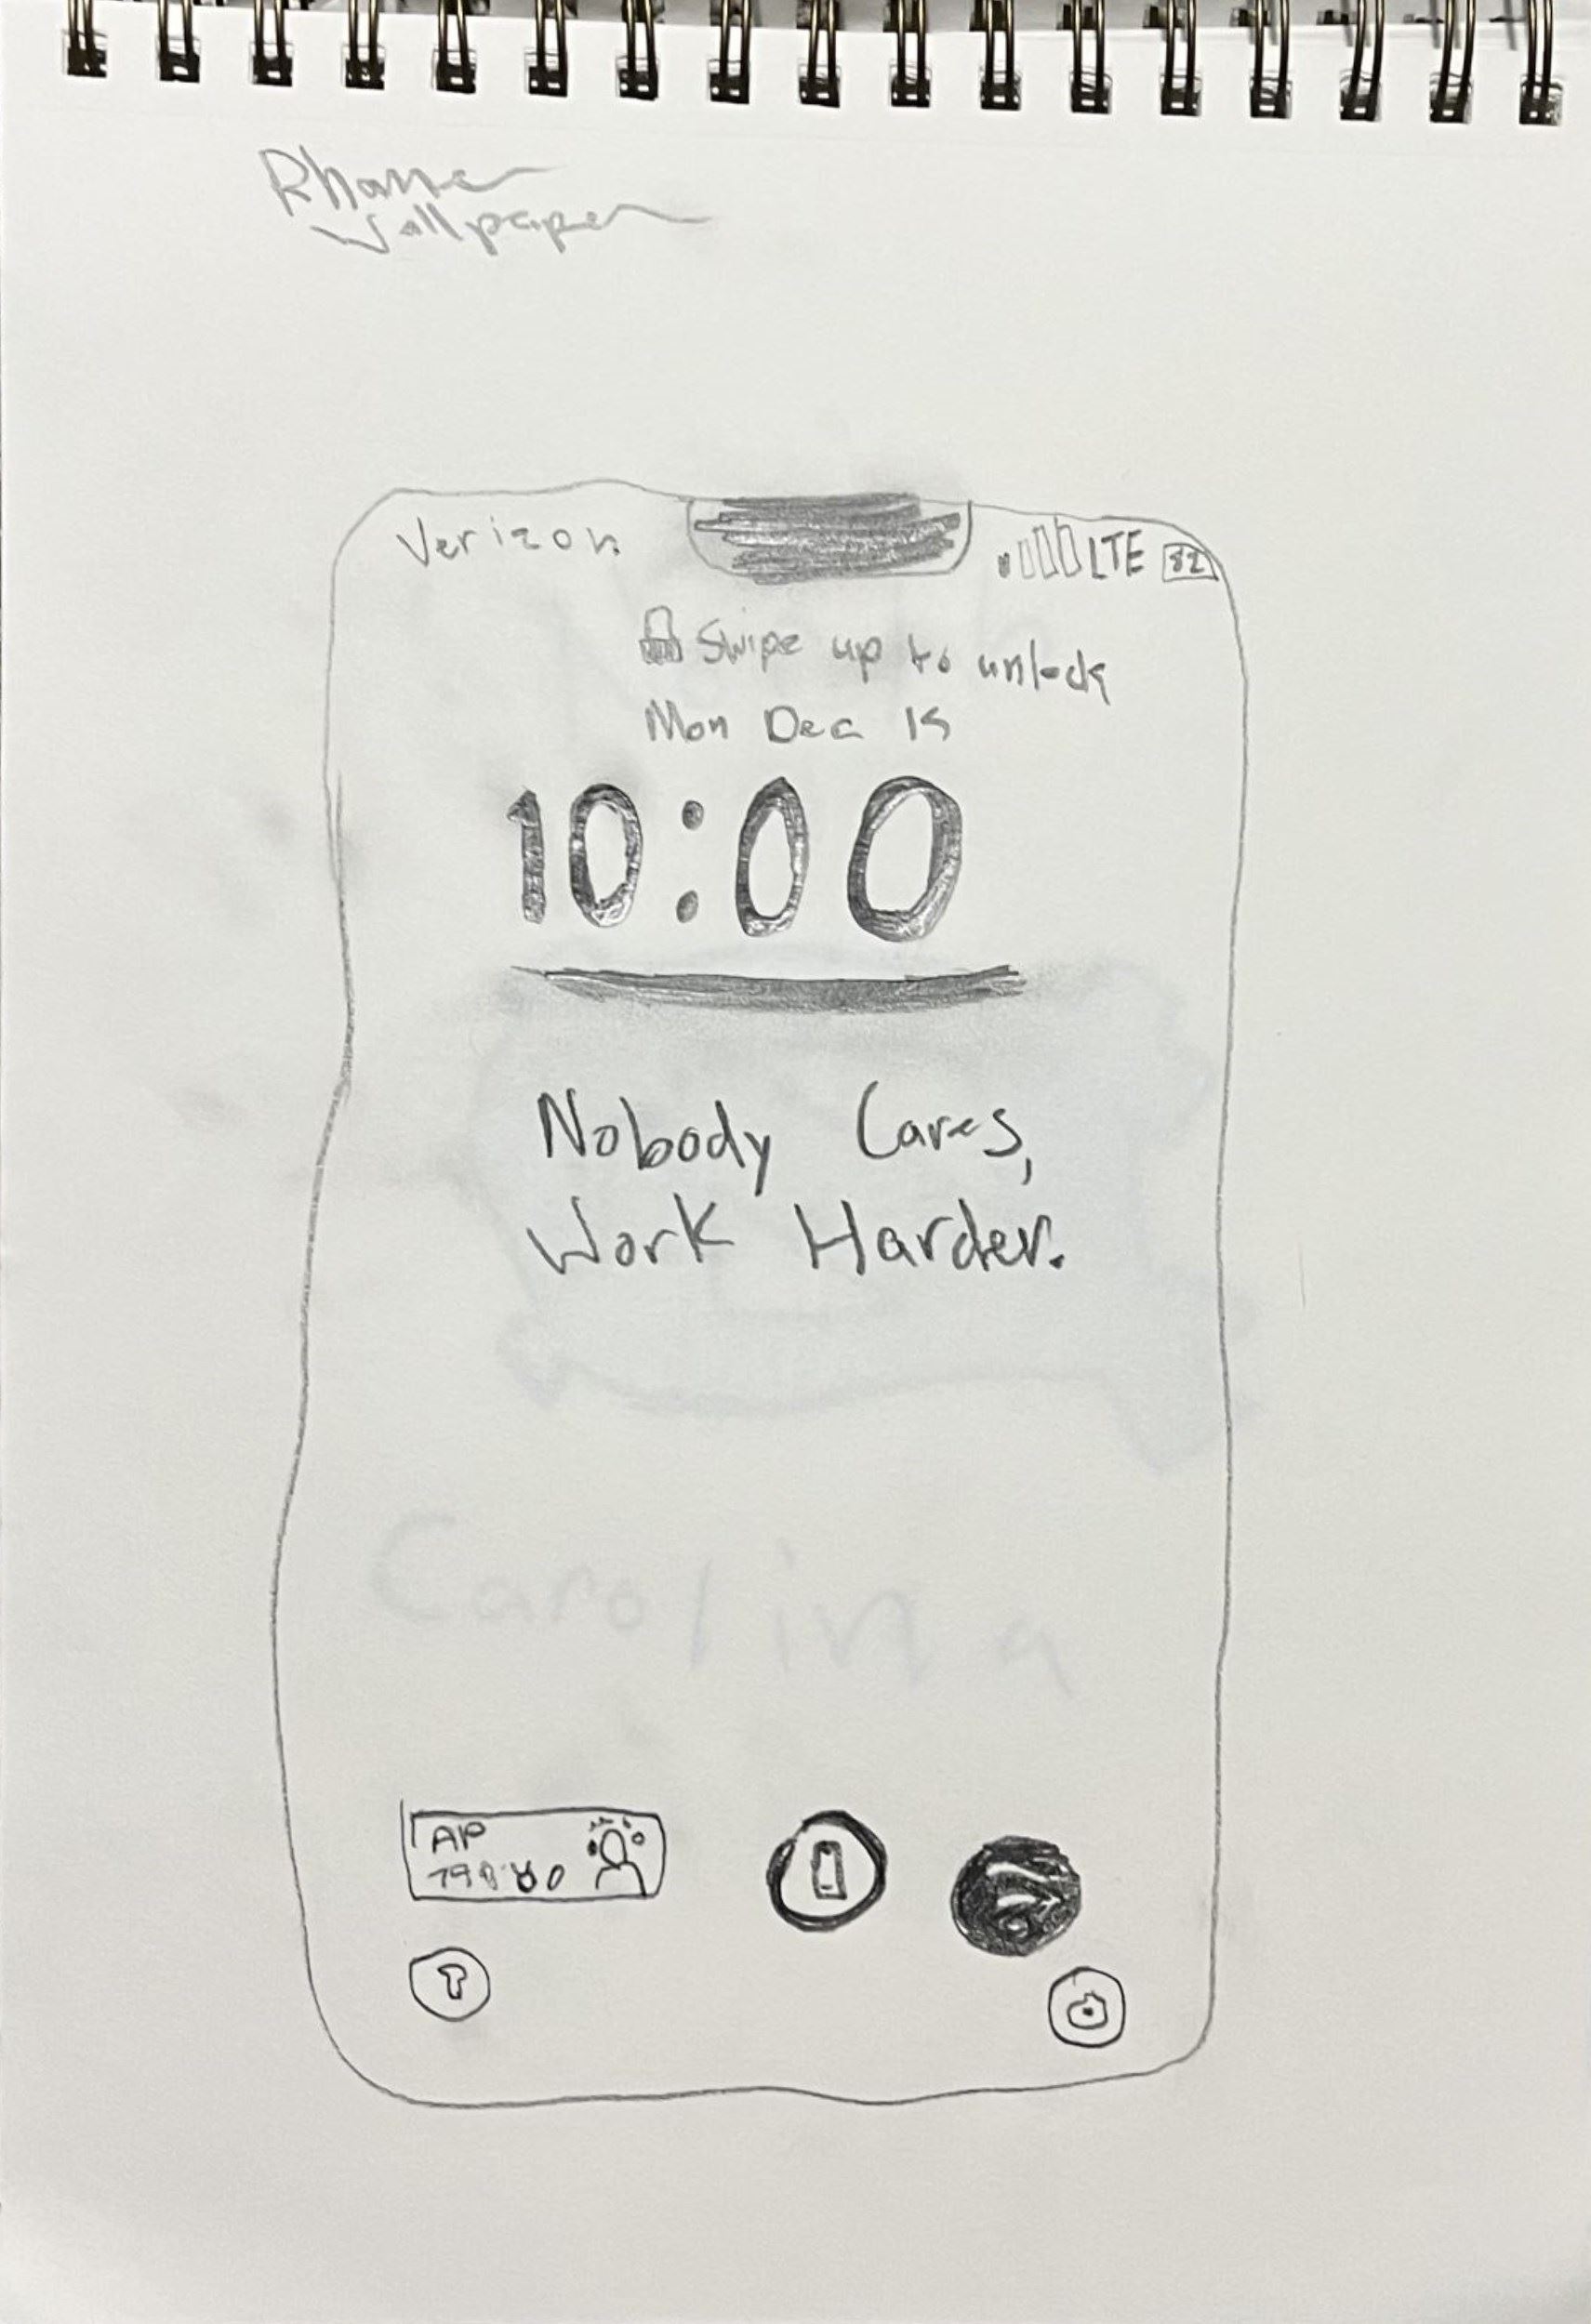 Phone
Wallpaper
Verizon
LTE 82
Swipe up to unlock
Mon Dec 15
10:00
Nobody Cares,
Work Harder.
Carolina
AP